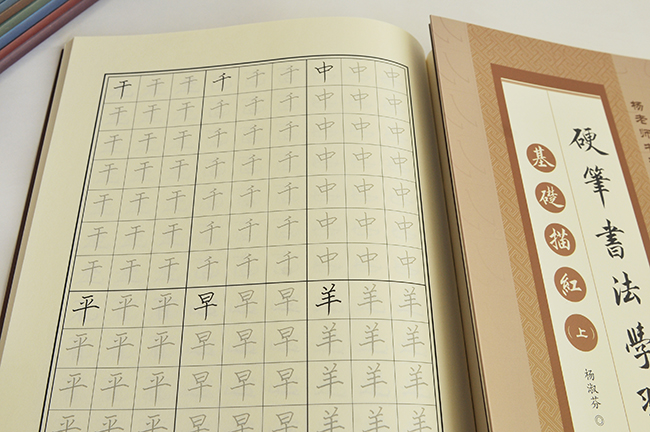 干干干千千千中中中
干干干千千千中中中
干干干千千千中中中
干干干千千千中中中
干干干千千千中中中
干干干千千千中中中
干干干千千千中中中
平平平早早早羊羊羊
平平平早早早羊羊羊
平平平早早早羊羊羊
平平平早早早羊羊羊
杨老师
硬筆書法學
基礎描紅（上）
杨淑芬◎